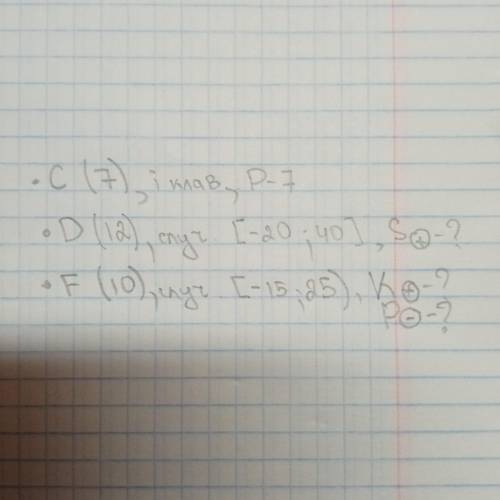 • C (7), i клав., P-7
• D (12), случ. [-20; 40], S⊕-?
• F (10), случ. [-15; 25), K⊕-?
P⊖-?